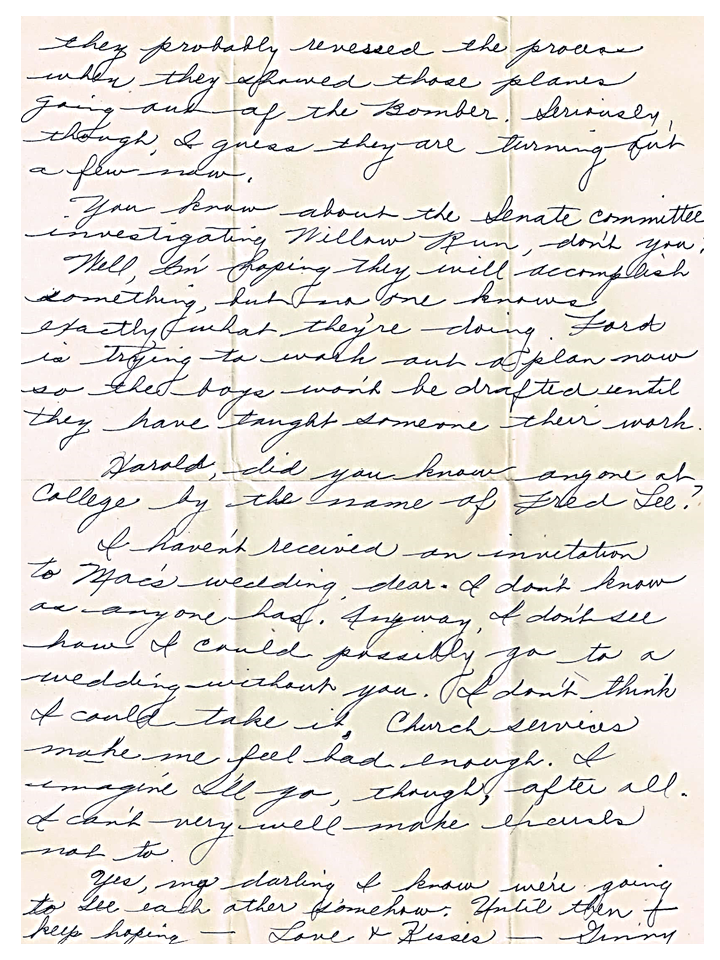 they probably revessed the process
when they showed those planes
going out of the Bomber. Seriously,
though, I guess they are turning out
a few now.
You know about the Senate committee
investigating Willow Run, don't you?
Well, I'm hoping they will accomplish
something, but no one knows
exactly what they're doing. Ford
is trying to work out a plan now
so the boys won't be drafted until
they have taught someone their work.
Harold, did you know anyone at
College by the name of Fred Lee?
I haven't received an invitation
to Mac's wedding, dear. I don't know
as anyone has. Anyway, I don't see
how I could possibly go to a
wedding without you. I don't think
I could take it. Church services
make me feel bad enough. I
imagine I'll go, though, after all.
I can't very well make excuses
not to.
Yes, my darling I know we're going
to see each other somehow. Until then I
keep hoping — Love & Kisses — Ginny